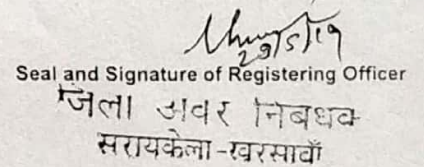 29/5/19
Seal and Signature of Registering Officer
जिला अवर निबंधक
सरायकेला-खरसावाँ